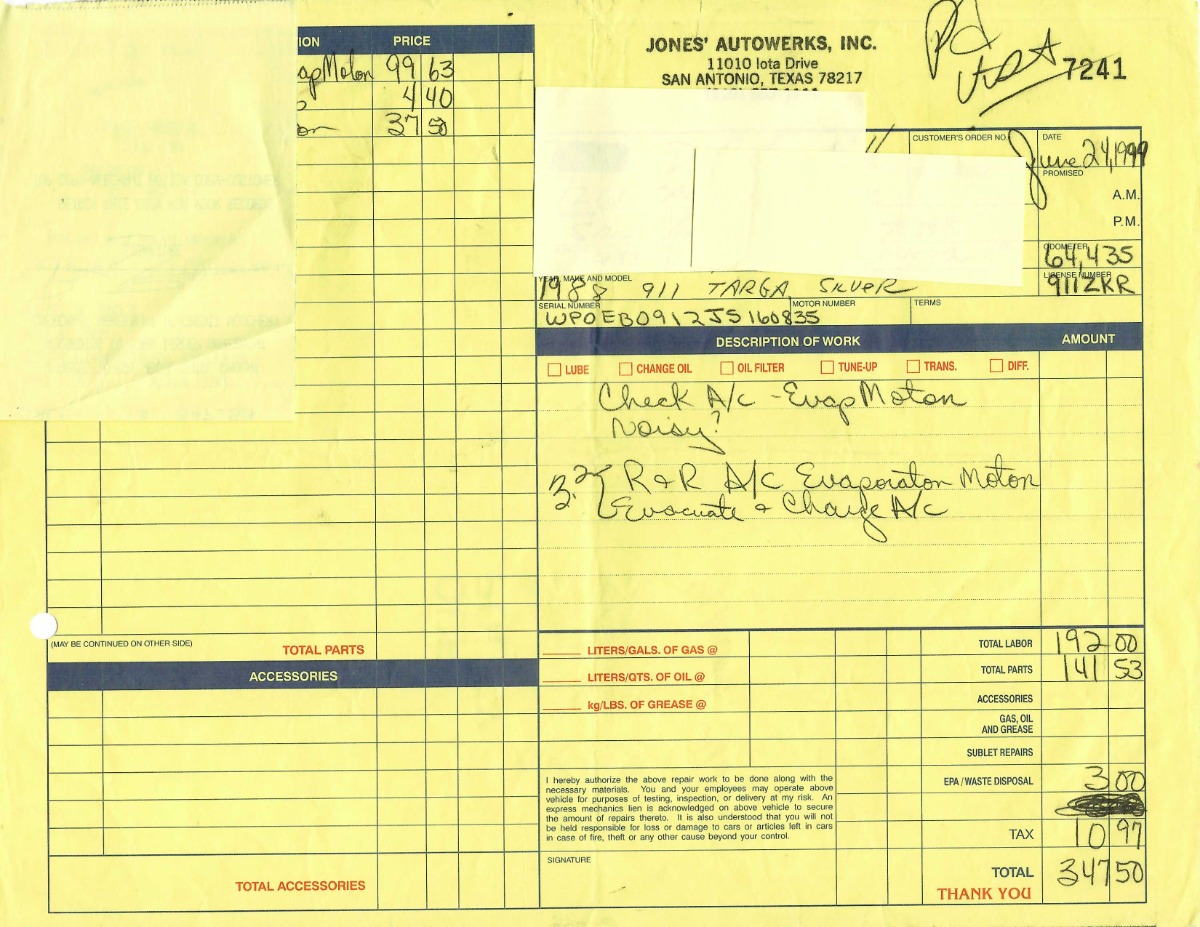 ION PRICE
apMoton 99 63
4 40
on 37 50
JONES' AUTOWERKS, INC.
11010 Iota Drive
SAN ANTONIO, TEXAS 78217
Pd
7241
CUSTOMER'S ORDER NO.
DATE
June 24, 1999
PROMISED
A.M.
P.M.
ODOMETER
64,435
YEAR, MAKE AND MODEL
1988 911 TARGA SILVER
LICENSE NUMBER
911ZKR
SERIAL NUMBER MOTOR NUMBER TERMS
WPOEB0912JS160835
DESCRIPTION OF WORK AMOUNT
LUBE CHANGE OIL OIL FILTER TUNE-UP TRANS. DIFF.
Check A/c - Evap Moton
Noisy?
3.2 { R & R A/c Evaporaton Moton
Evacuate & Charge A/c
(MAY BE CONTINUED ON OTHER SIDE) TOTAL PARTS
ACCESSORIES
TOTAL ACCESSORIES
LITERS/GALS. OF GAS @
LITERS/QTS. OF OIL @
kg/LBS. OF GREASE @
TOTAL LABOR 192 00
TOTAL PARTS 141 53
ACCESSORIES
GAS, OIL
AND GREASE
SUBLET REPAIRS
EPA / WASTE DISPOSAL 3 00
TAX 10 97
TOTAL 347 50
THANK YOU
I hereby authorize the above repair work to be done along with the
necessary materials. You and your employees may operate above
vehicle for purposes of testing, inspection, or delivery at my risk. An
express mechanics lien is acknowledged on above vehicle to secure
the amount of repairs thereto. It is also understood that you will not
be held responsible for loss or damage to cars or articles left in cars
in case of fire, theft or any other cause beyond your control.
SIGNATURE